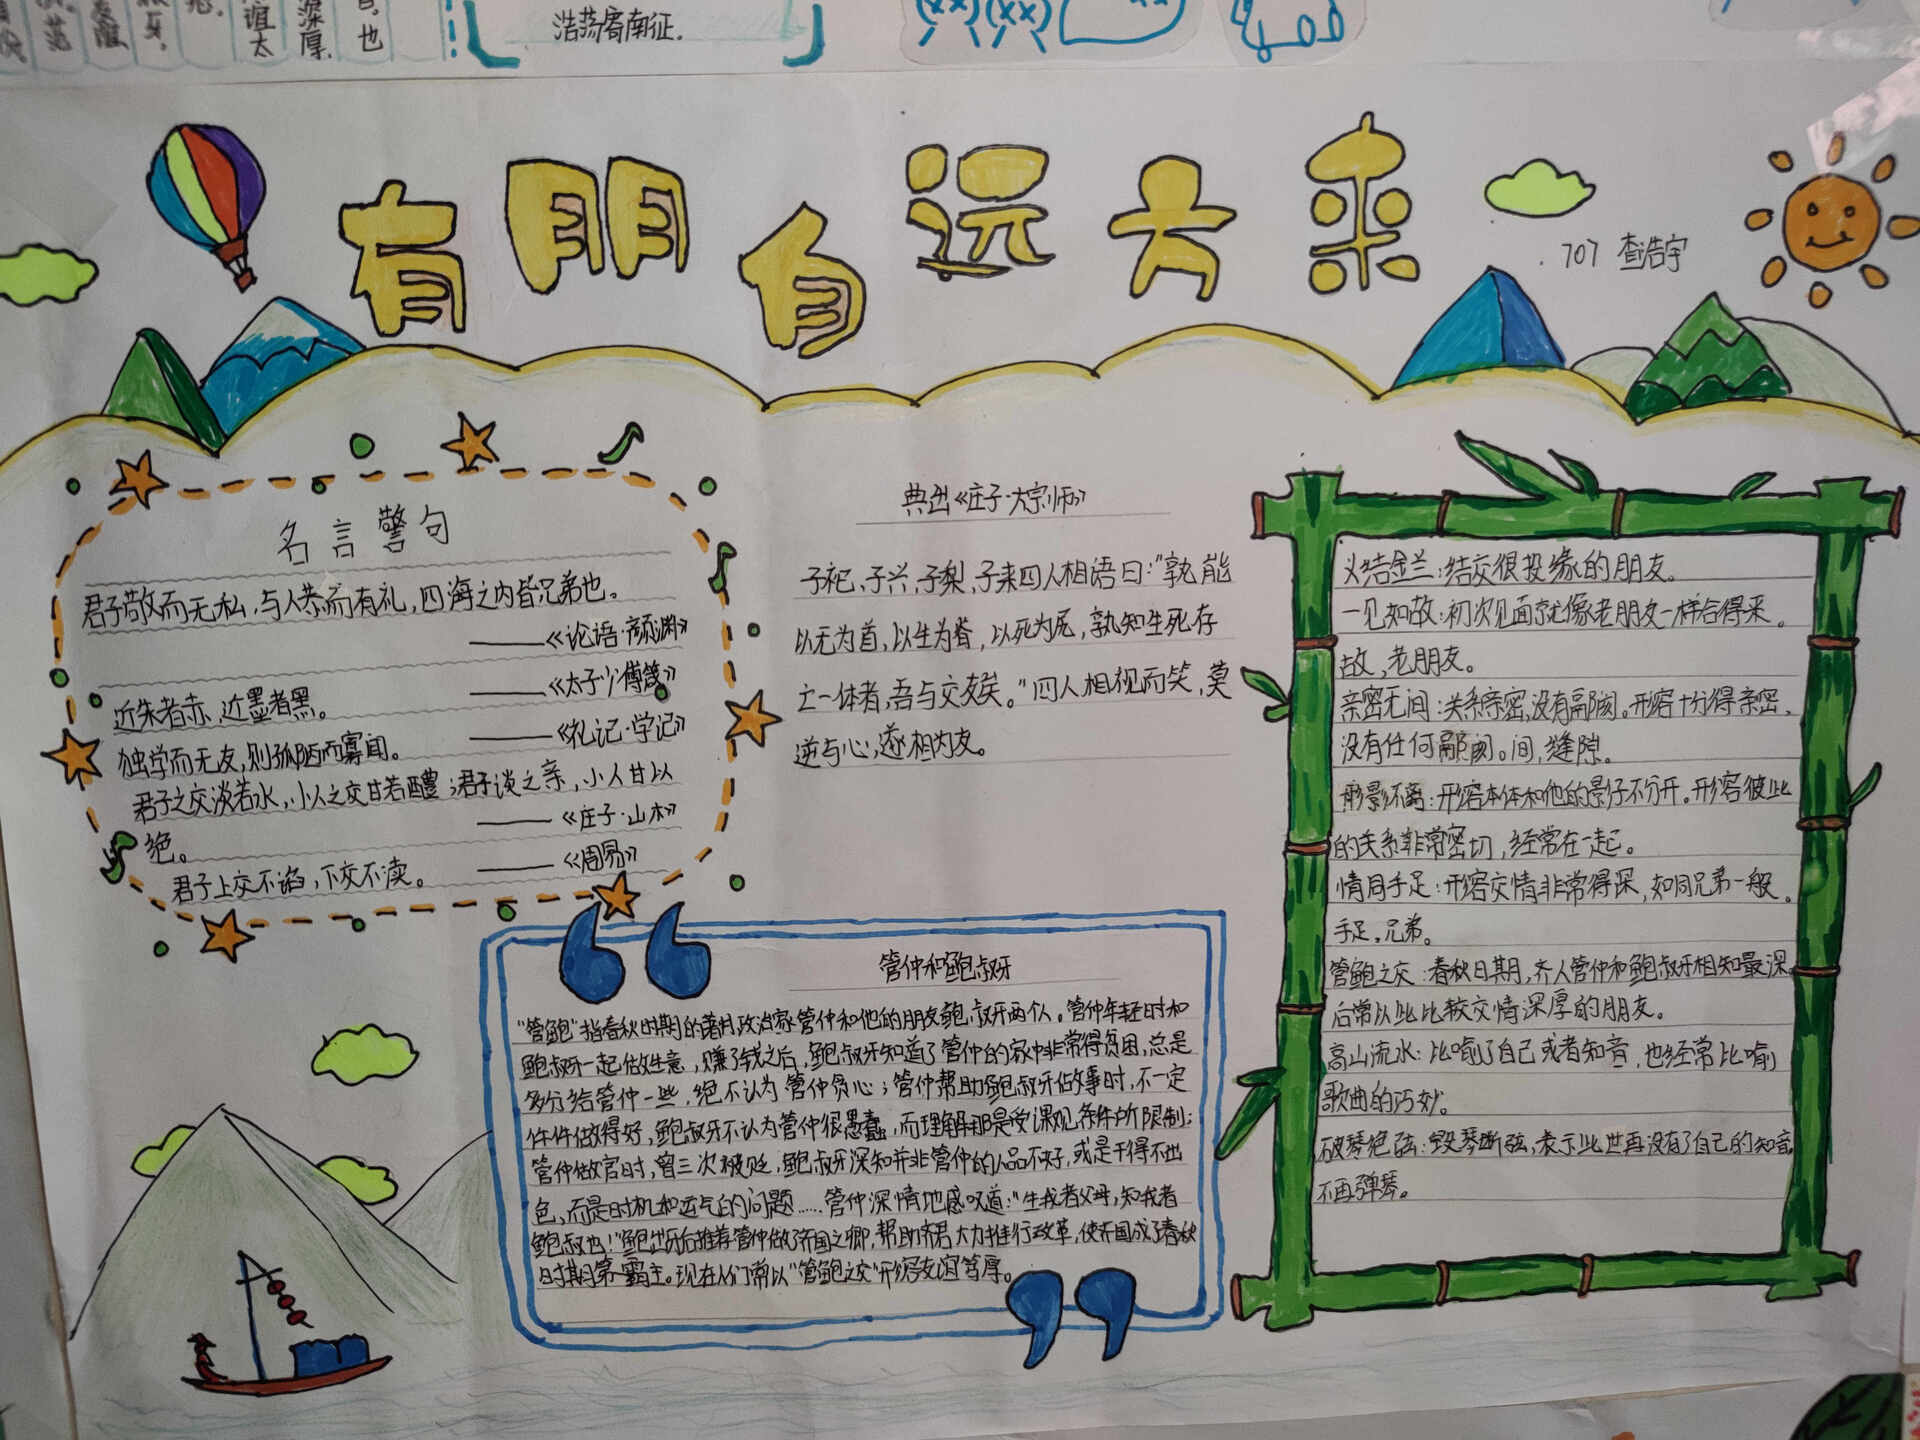 浩荡寄南征.
有朋自远方来
707 查浩宇
名言警句
君子敬而无私,与人恭而有礼,四海之内皆兄弟也。
——《论语·颜渊》
近朱者赤,近墨者黑。
——《太子少傅箴》
独学而无友,则孤陋而寡闻。
——《礼记·学记》
君子之交淡若水,小人之交甘若醴;君子谈之亲,小人甘以
绝。
——《庄子·山木》
君子上交不谄,下交不渎。
——《周易》
典出《庄子·大宗师》
子祀、子兴、子梨、子来四人相语曰:“孰能
以无为首,以生为脊,以死为尻,孰知生死存
亡一体者,吾与交友矣。”四人相视而笑,莫
逆与心,遂相为友。
管仲和鲍叔牙
“管鲍”指春秋时期的著名政治家管仲和他的朋友鲍叔牙两个人。管仲年轻时和
鲍叔牙一起做生意,赚了钱之后,鲍叔牙知道了管仲的家中非常得贫困,总是
多分给管仲一些,绝不认为管仲贪心;管仲帮助鲍叔牙做事时,不一定
件件做得好,鲍叔牙不认为管仲很愚蠢,而理解那是受课观条件所限制;
管仲做官时,曾三次被贬,鲍叔牙深知并非管仲的人品不好,或是干得不出
色,而是时机和运气的问题……管仲深情地感叹道:“生我者父母,知我者
鲍叔也!”鲍叔牙后推荐管仲做了齐国之卿,帮助齐君大力推行改革,使齐国成了春秋
时期第一霸主。现在人们常以“管鲍之交”形容友谊笃厚。
义结金兰:结交很投缘的朋友。
一见如故:初次见面就像老朋友一样合得来。
故,老朋友。
亲密无间:关系亲密,没有隔阂。形容十分得亲密,
没有任何隔阂。间,缝隙。
形影不离:形容本体和他的影子不分开。形容彼此
的关系非常密切,经常在一起。
情同手足:形容交情非常得深,如同兄弟一般。
手足,兄弟。
管鲍之交:春秋日期,齐人管仲和鲍叔牙相知最深
后常以此比较交情深厚的朋友。
高山流水:比喻了自己或者知音,也经常比喻
歌曲的巧妙。
破琴绝弦:毁琴断弦,表示此世再没有了自己的知音
不再弹琴。